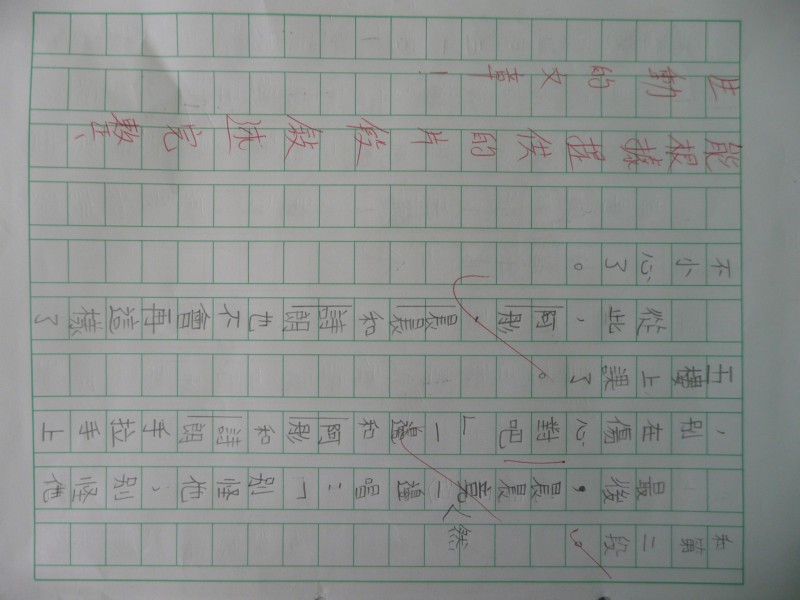 和第二段。
最後，晨晨竟然一邊唱：「別怪他、別怪他
，別在傷心對吧」一邊和阿彤和詩朗手拉手上
五樓上課了。
從此，阿彤、晨晨和詩朗也不會再這樣了
不小心了。
能根據提供的片段敘述完整、
生動的文章！